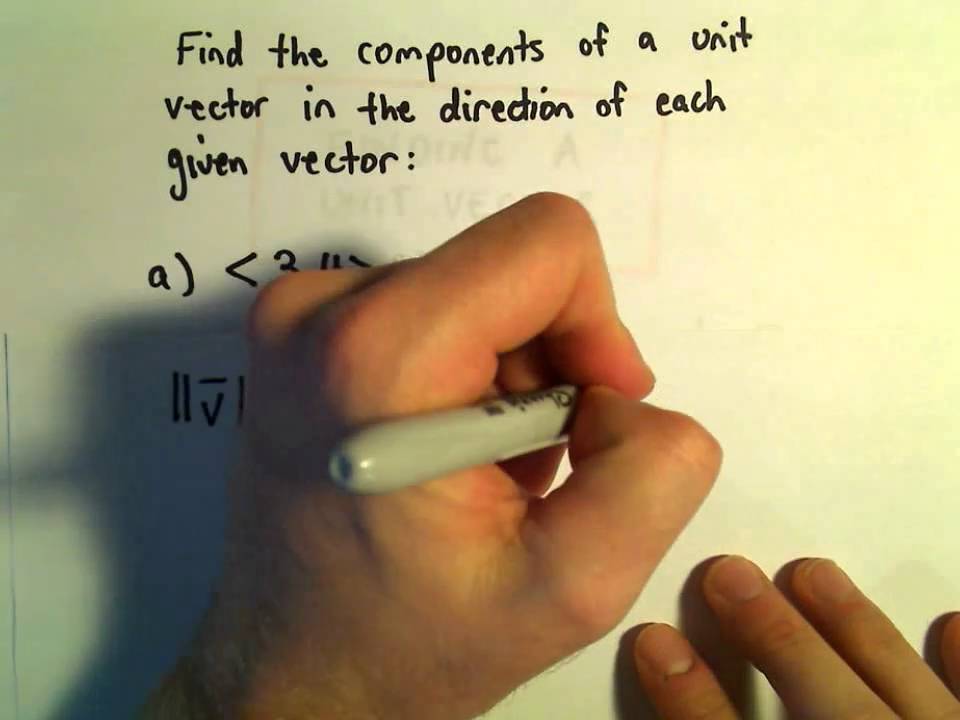 Find the components of a unit
vector in the direction of each
given vector:
a) < 3, 4>
||v̅|